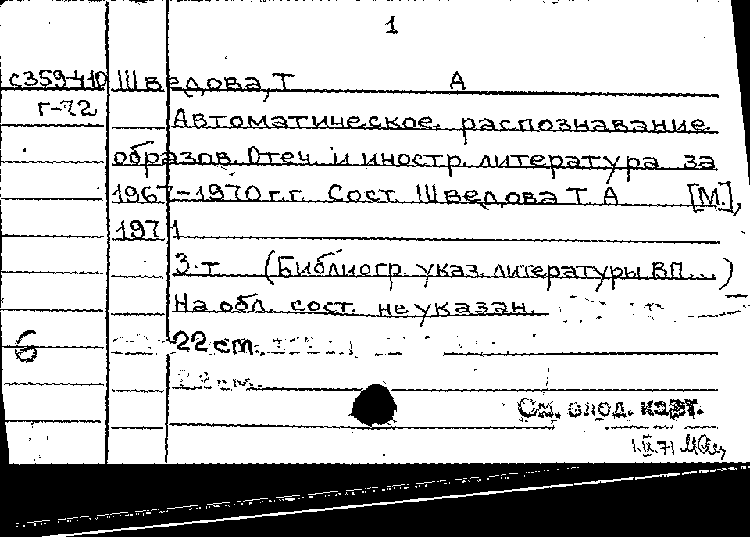 1
С359-410 Шведова, Т А
Г-72 Автоматическое распознавание
образов. Отеч. и иностр. литература за
1967-1970 г.г. Сост. Шведова Т А [М.],
1971
3 т (Библиогр. указ. литературы ВП...)
На обл. сост. не указан.
6 22 см.
22 см.
См. след. карт.